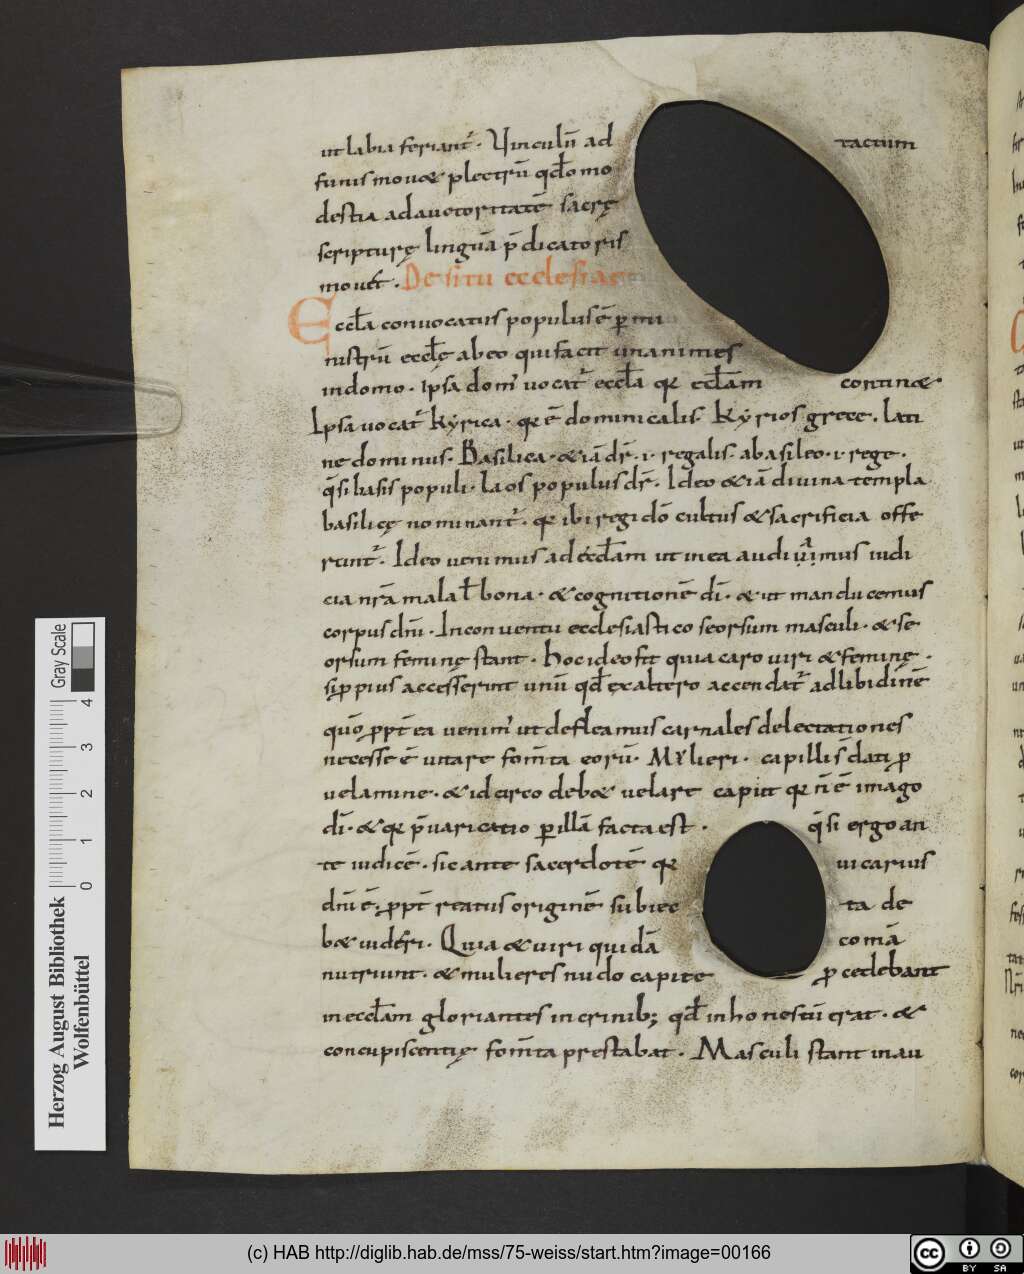 ut labia feriant̄. Vinculū ad tactum
funis mouet plectrū qđ o mo
destia ad auctoritatē sacrę
scripturę linguā p̄dicatoris
mouet. De situ ecclesiae
Eccła conuocatus populus ē p mi
nistrū eccłę ab eo qui facit unanimes
in domo. Ipsa dom̄ uocat̄ eccła qꝫ ecclam continet
Ipsa uocat̄ kyrica. qꝫ ē dominicalis. Kyrios grece. lati
ne dominus. Basilica. & iā dr̄. i. regalis. a basileo. i. rege.
q̄si basis populi. laos populus dr̄. Ideo & iā diuina templa
basilicę nominant̄. qꝫ ibi regi dō cultus & sacrificia offe
runt̄. Ideo uenimus ad eccłam ut in ea audiamus iudi
cia nr̄a mala ł bona. & cognitionē dī. & ut manducemus
corpus dn̄i. In conuentu ecclesiastico seorsum masculi. & se
orsum feminę stant. Hoc ideo fit quia caro uiri & feminę.
si ppius accesserint unū qđ ex altero accendat̄ ad libidinē
quō ppt̄ ea uenim̄ ut defleamus carnales delectationes
necesse ē uitare fom̄ta eorū. Mulieri. capilli s̄ dati p
uelamine. & idcirco debet uelare caput qꝫ n̄ ē imago
dī. & qꝫ p̄uaricatio p illā facta est. q̄si ergo an
te iudicē. sic ante sacerdotē qꝫ uicarius
dn̄i ē. ppt̄ reatus originē subiec ta de
bet uideri. Quia & uiri quidā comā
nutriunt. & mulieres nudo capite pcedebant
in eccłam gloriantes in crinib; qđ inhonestū erat. &
concupiscentię fom̄ta prestabat. Masculi stant in au
Herzog August Bibliothek
Wolfenbüttel
0 1 2 3 4
Gray Scale
(c) HAB http://diglib.hab.de/mss/75-weiss/start.htm?image=00166
cc BY SA